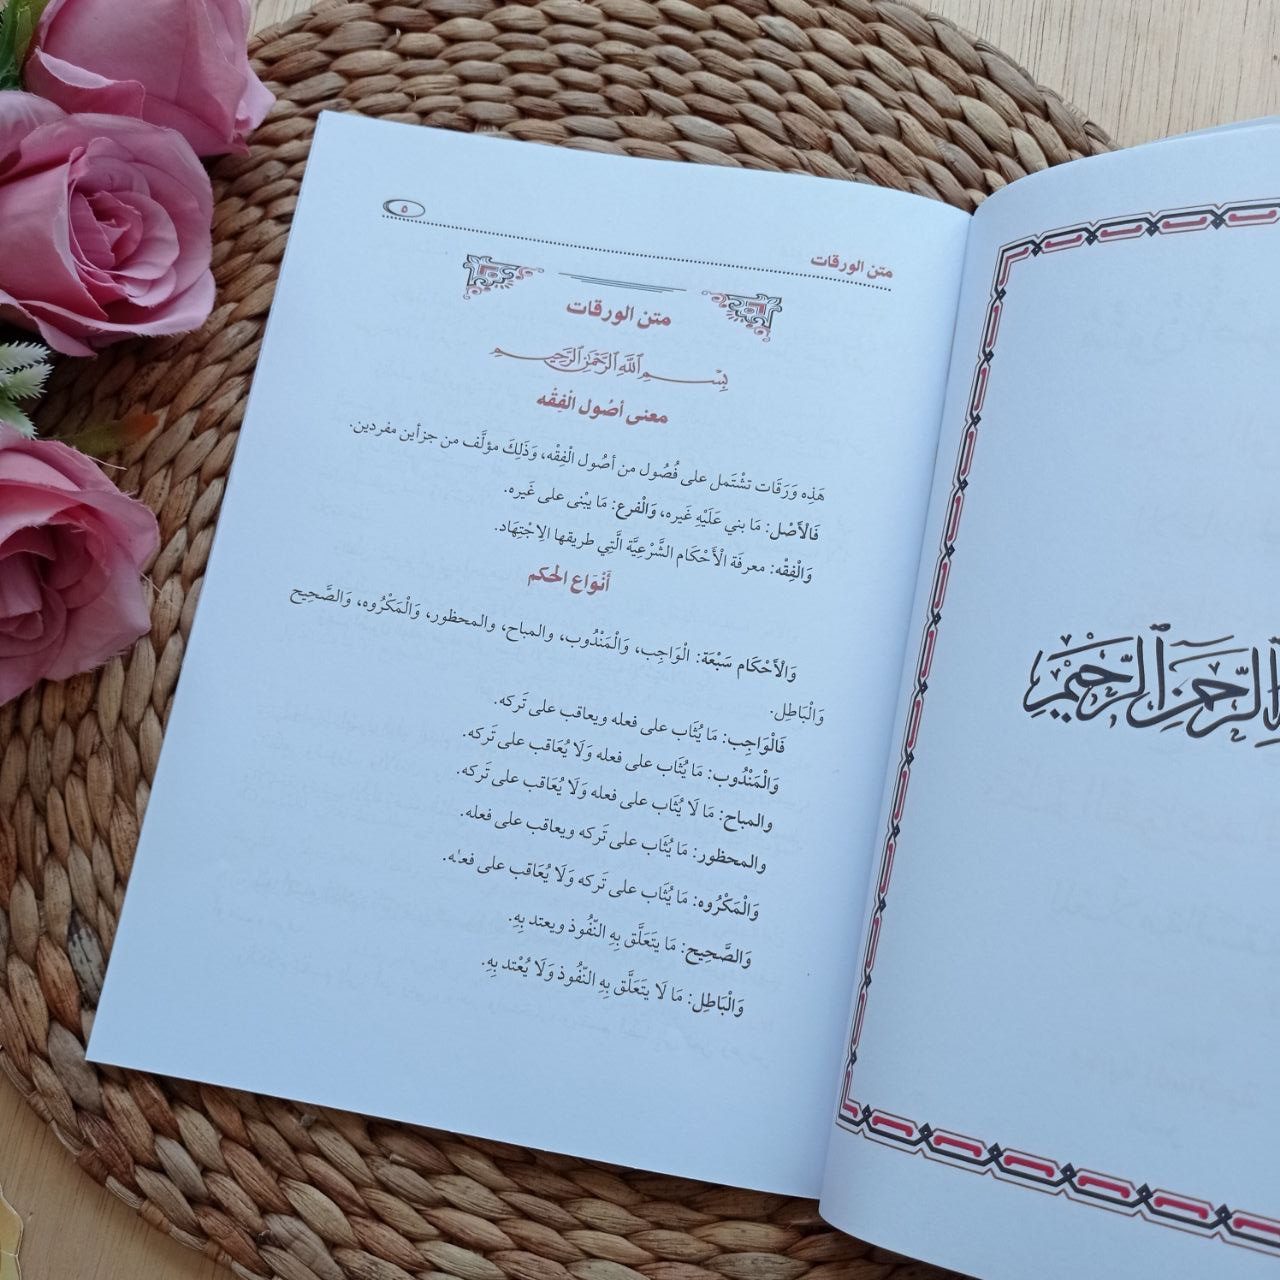 متن الورقات
٥
متن الورقات
بِسْمِ ٱللَّهِ ٱلرَّحْمَٰنِ ٱلرَّحِيمِ
معنى أصُول الْفِقْه
هَذِه وَرَقَات تشْتَمل على فُصُول من أصُول الْفِقْه، وَذَلِكَ مؤلَّف من جزأين مفردين.
فَالْأَصْل: مَا بني عَلَيْهِ غَيره، وَالْفرع: مَا يبْنى على غَيره.
وَالْفِقْه: معرفَة الْأَحْكَام الشَّرْعِيَّة الَّتِي طريقها الِاجْتِهَاد.
أَنْوَاع الحكم
وَالْأَحْكَام سَبْعَة: الْوَاجِب، وَالْمَنْدُوب، والمباح، والمحظور، وَالْمَكْرُوه، وَالصَّحِيح
وَالْبَاطِل.
فَالْوَاجِب: مَا يُثَاب على فعله ويعاقب على تَركه.
وَالْمَنْدُوب: مَا يُثَاب على فعله وَلَا يُعَاقب على تَركه.
والمباح: مَا لَا يُثَاب على فعله وَلَا يُعَاقب على تَركه.
والمحظور: مَا يُثَاب على تَركه ويعاقب على فعله.
وَالْمَكْرُوه: مَا يُثَاب على تَركه وَلَا يُعَاقب على فعله.
وَالصَّحِيح: مَا يتَعَلَّق بِهِ النّفُوذ ويعتد بِهِ.
وَالْبَاطِل: مَا لَا يتَعَلَّق بِهِ النّفُوذ وَلَا يُعْتد بِهِ.
ٱلرَّحْمَٰنِ ٱلرَّحِيمِ